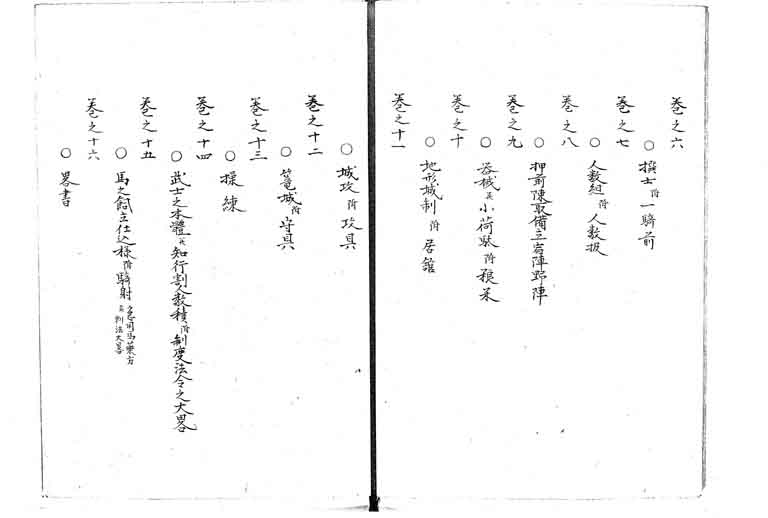 巻之六
○撰士附一騎前
巻之七
○人数組附人数扱
巻之八
○押前陳取備立宿陣野陣
巻之九
○器械並小荷駄附粮米
巻之十
○地形城制附居館
巻之十一
○城攻附攻具
巻之十二
○篭城附守具
巻之十三
○操練
巻之十四
○武士之本體並知行割人数積附制度法令之大畧
巻之十五
○馬之飼立仕込様附騎射
巻之十六
○畧書